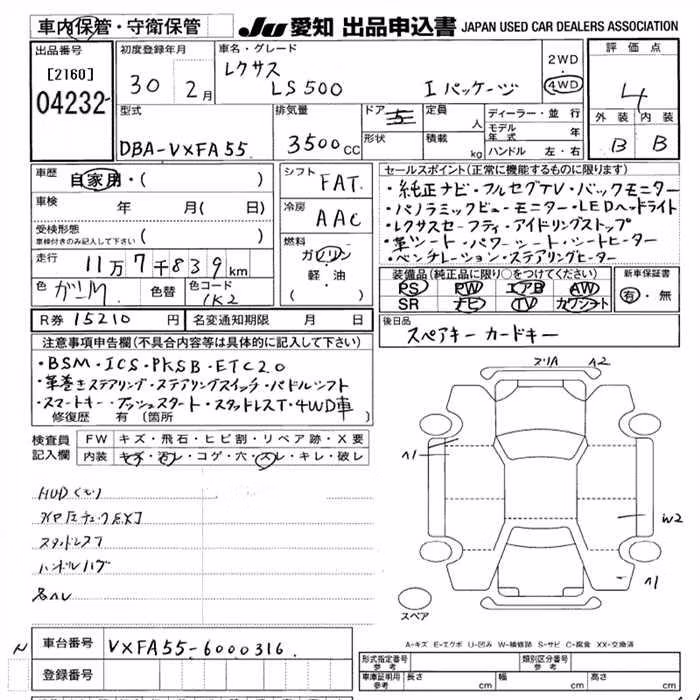 車内保管・守衛保管
JU 愛知 出品申込書 JAPAN USED CAR DEALERS ASSOCIATION
出品番号
[2160]
04232
初度登録年月
30 年 2月
車名・グレード
レクサス
LS500 Iパッケージ
2WD
・
4WD
評価点
4
外装 内装
B B
型式
DBA-VXFA55
排気量
3500cc
ドア 5
形状
定員 人
積載 kg
ディーラー・並行
モデル年式 年
ハンドル 左・右
車歴 自家用・( )
車検 年 月( 日)
受検形態
車検付きのみ記入して下さい ( )
走行 11万7千839km
色 ガンM 色替 色コード 1K2
シフト FAT
冷房 AAC
燃料 ガソリン
軽・油
( )
セールスポイント(正常に機能するものに限ります)
・純正ナビ・フルセグTV・バックモニター
・パノラミックビューモニター・LEDヘッドライト
・レクサスセーフティ・アイドリングストップ
・革シート・パワーシート・シートヒーター
・ベンチレーション・ステアリングヒーター
装備品(純正品に限り○をつけてください)
PS PW エアB AW
SR ナビ TV カワシート
新車保証書
有・無
R券 15210 円 名変通知期限 月 日
後日品 スペアキー カードキー
注意事項申告欄(不具合内容等は具体的に記入して下さい)
・BSM・ICS・PKSB・ETC2.0
・革巻きステアリング・ステアリングスイッチ・パドルシフト
・スマートキー・プッシュスタート・スタッドレスT・4WD車
修復歴 有 (箇所 )
検査員記入欄
FW キズ・飛石・ヒビ割・リペア跡・X要
内装 キズ・汚レ・コゲ・穴・スレ・キレ・破レ
HUDくもり
スタッドレス
ハンドルハゲ
ヘ2
ヘ1
W2
ヘ1
スペア
A-キズ E-エクボ U-凹み W-補修跡 S-サビ C-腐食 XX-交換済
N 車台番号 VXFA55-6000316
登録番号
形式指定番号 参考 類別区分番号 参考
車庫証明用 参考 長さ cm 幅 cm 高さ cm